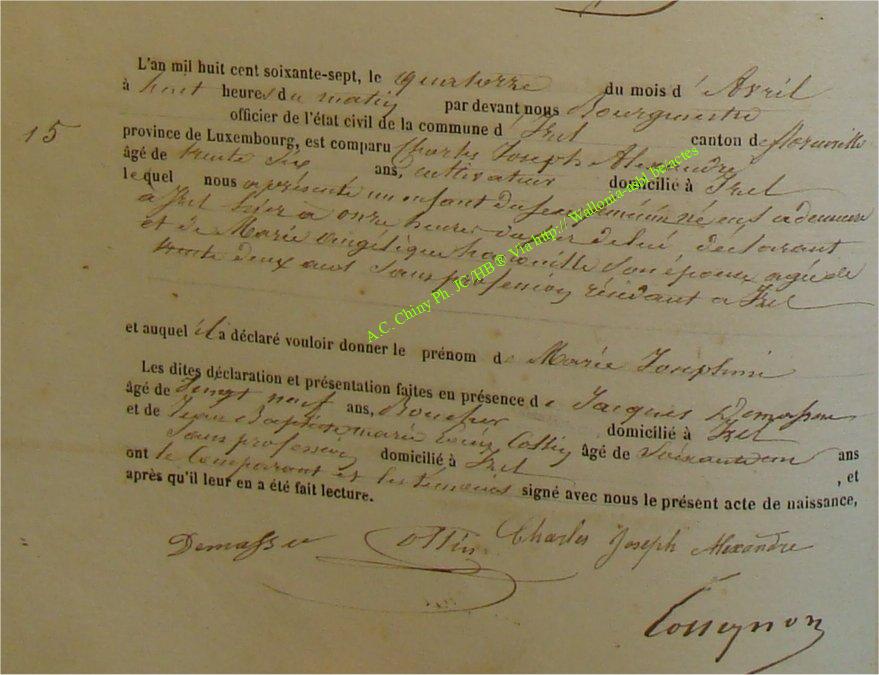 L'an mil huit cent soixante-sept, le quatorze du mois d'Avril
à huit heures du matin par devant nous Bourgmestre
officier de l'état civil de la commune d'Izel canton de florenville
15
province de Luxembourg, est comparu Charles Joseph Alexandre
âgé de trente six ans, cultivateur domicilié à Izel
lequel nous a présenté un enfant du sexe féminin né en sa demeure
à Izel hier à onze heures de lui déclarant
et de Marie angélique son épouse agée de
trente deux ans sans profession résidant a Izel
et auquel il a déclaré vouloir donner le prénom de Marie Josephine
Les dites déclaration et présentation faites en présence de Jacques Demasseu
âgé de vingt neuf ans, Boucher domicilié à Izel
et de Jean Baptiste marie Cottin âgé de soixante ans
sans profession domicilié à Izel , et
ont le Comparant et les témoins signé avec nous le présent acte de naissance,
après qu'il leur en a été fait lecture.
Demasseu Cottin Charles Joseph Alexandre
A.C. Chiny Ph. JC/HB® Via http:// Wallonia-asbl be/actes